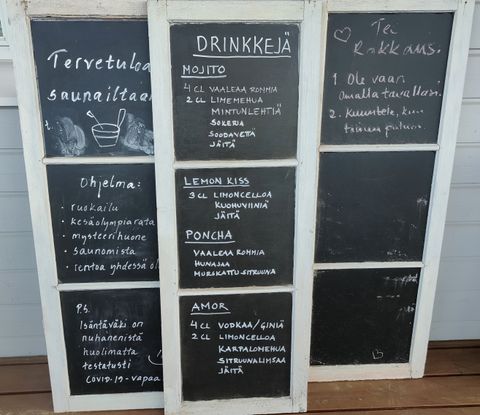 Tervetuloa
saunailtaan
Ohjelma:
· ruokailu
· kesäolympiarata
· mysteerihuone
· saunomista
· rentoa yhdessä ol
P.S.
Isäntäväki on
nuhanenistä
huolimatta
testatusti
COVID-19-vapaa
DRINKKEJÄ
MOJITO
4 CL VAALEAA ROMMIA
2 CL LIMEMEHUA
MINTUNLEHTIÄ
SOKERIA
SOODAVETTÄ
JÄITÄ
LEMON KISS
3 CL LIMONCELLOA
KUOHUVIINIÄ
JÄITÄ
PONCHA
VAALEAA ROMMIA
HUNAJAA
MURSKATTU SITRUUNA
AMOR
4 CL VODKAA/GINIÄ
2 CL LIMONCELLOA
KARPALOMEHUA
SITRUUNALIMSAA
JÄITÄ
Tei
Rakkaus:
1. Ole vaan
omalla tavallasi.
2. Kuuntele, kun